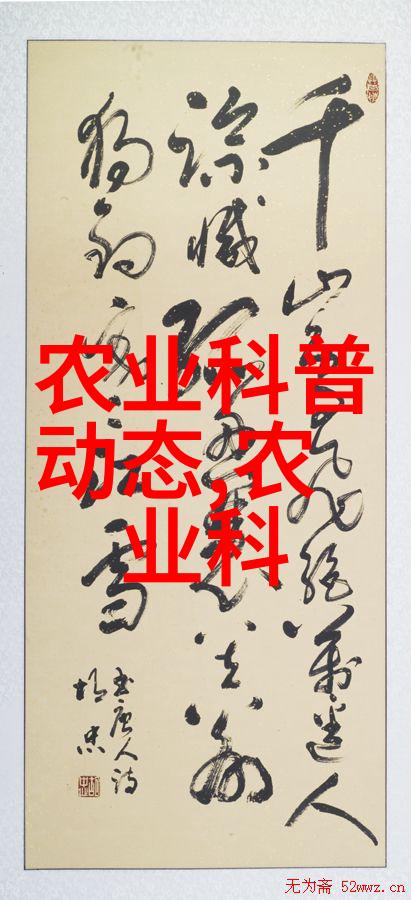 农业科普
动态,农
业科
千山鸟飞绝万径人
踪灭孤舟蓑笠翁
独钓寒江雪
书唐人诗
无为斋 52wwz.cn